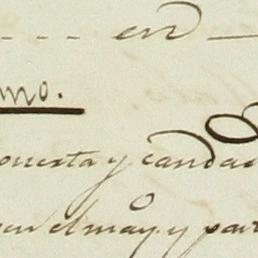 en
mo.
puesta y canda
en el may.o y par